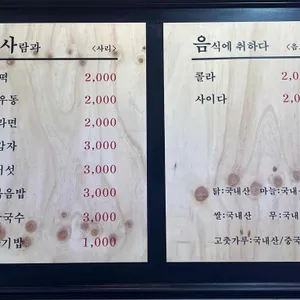 사람과 <사리>
떡 2,000
우동 2,000
라면 2,000
감자 3,000
버섯 3,000
볶음밥 3,000
국수 3,000
공기밥 1,000
음식에 취하다 <음
콜라 2,0
사이다 2,0
닭:국내산 마늘:국내산
쌀:국내산 무:국내
고춧가루:국내산/중국